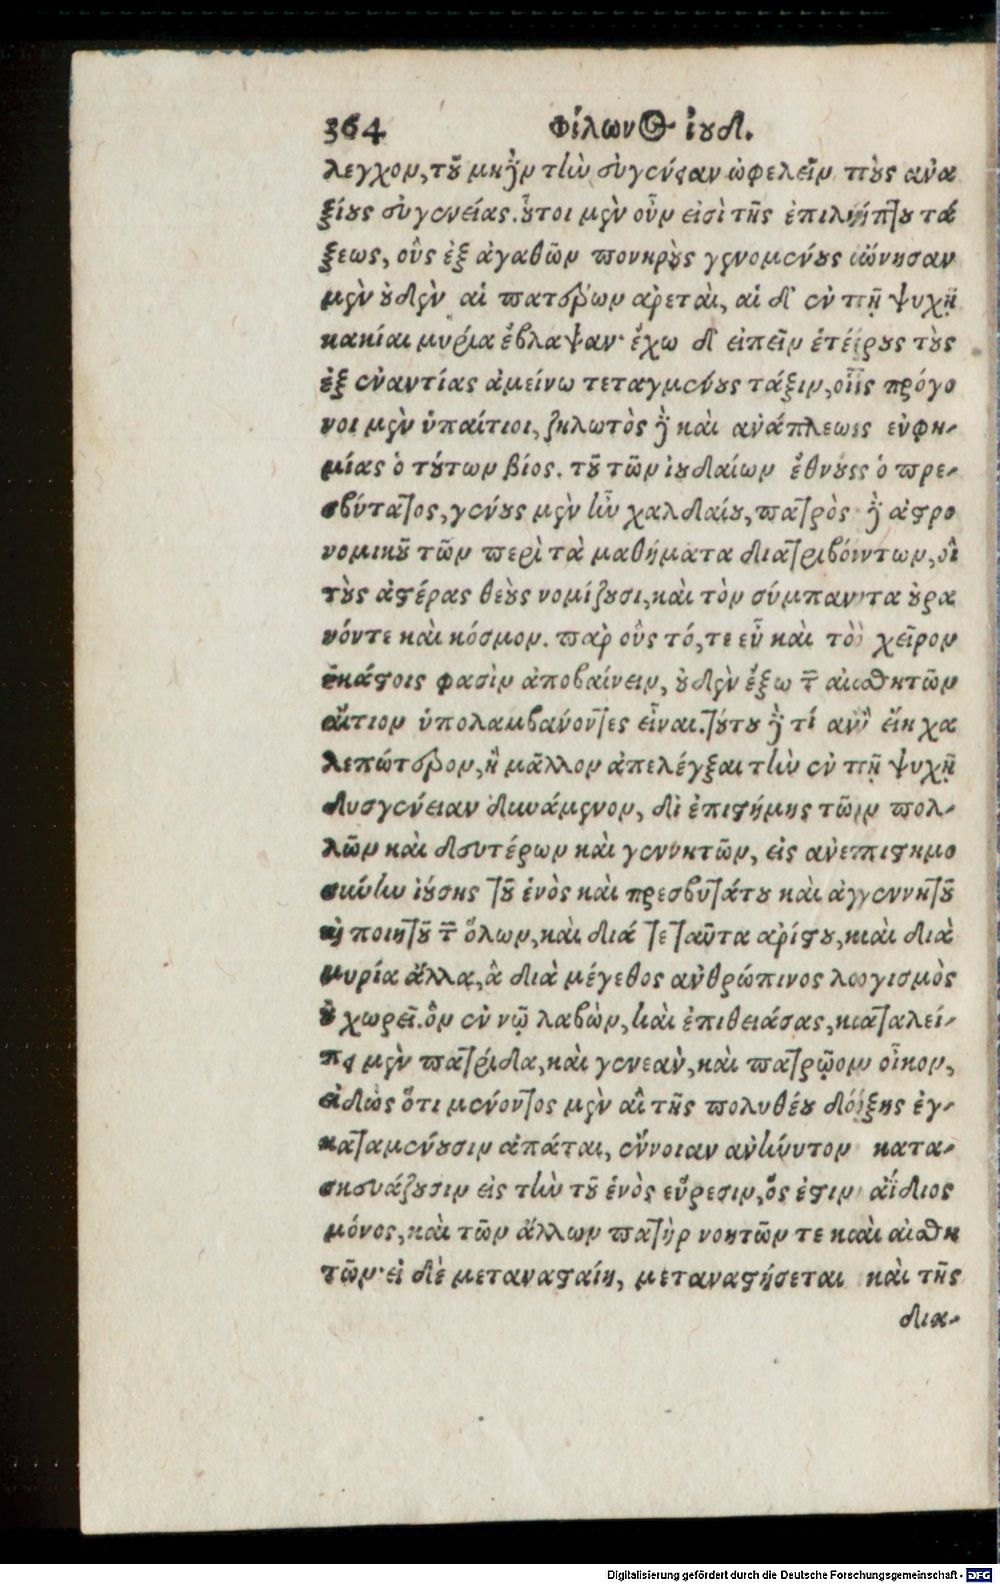 364 Φίλωνος ἰουδ.
λεγχον, τοῦ μηδὲν τὴν συγγένειαν ὠφελεῖν τοὺς ἀνα
ξίους συγγενείας. οὗτοι μὲν οὖν εἰσὶ τῆς ἐπιλήπτου τά
ξεως, οὓς ἐξ ἀγαθῶν πονηροὺς γενομένους ὤνησαν
μὲν οὐδὲν αἱ πατέρων ἀρεταὶ, αἱ δ' ἐν τῇ ψυχῇ
κακίαι μυρία ἔβλαψαν· ἔχω δ' εἰπεῖν ἑτέρους τοὺς
ἐξ ἐναντίας ἀμείνω τεταγμένους τάξιν, οἷς πρόγο
νοι μὲν ὑπαίτιοι, ζηλωτὸς δὲ καὶ ἀνάπλεως εὐφη-
μίας ὁ τούτων βίος. τοῦ τῶν ἰουδαίων ἔθνους ὁ πρε-
σβύτατος, γένους μὲν ἦν χαλδαίου, πατρὸς δὲ ἀστρο
νομικοῦ τῶν περὶ τὰ μαθήματα διατριβόντων, οἳ
τοὺς ἀστέρας θεοὺς νομίζουσι, καὶ τὸν σύμπαντα οὐρα
νόντε καὶ κόσμον. παρ' οὓς τό, τε εὖ καὶ τὸ χεῖρον
ἑκάστοις φασὶν ἀποβαίνειν, οὐδὲν ἔξω τῶν αἰσθητῶν
αἴτιον ὑπολαμβάνοντες εἶναι. τούτου δὲ τί ἂν εἴη χα
λεπώτερον, ἢ μᾶλλον ἀπελέγξαι τὴν ἐν τῇ ψυχῇ
δυσγένειαν δυνάμενον, δι' ἐπιστήμης τῶν πολ-
λῶν καὶ δευτέρων καὶ γεννητῶν, εἰς ἀνεπιστημο
σύνην ἰούσης τοῦ ἑνὸς καὶ πρεσβυτάτου καὶ ἀγεννήτου
καὶ ποιητοῦ τῶν ὅλων, καὶ διά τε ταῦτα ἀρίστου, καὶ διὰ
μυρία ἄλλα, ἃ διὰ μέγεθος ἀνθρώπινος λογισμὸς
οὐ χωρεῖ. ὃν ἐν νῷ λαβὼν, καὶ ἐπιθειάσας, καταλεί-
πει μὲν πατρίδα, καὶ γενεὰν, καὶ πατρῷον οἶκον,
εἰδὼς ὅτι μένοντος μὲν αἱ τῆς πολυθέου δόξης ἐγ-
καταμένουσιν ἀπάται, ἔννοιαν ἀνήνυτον κατα-
σκευάζουσιν εἰς τὴν τοῦ ἑνὸς εὕρεσιν, ὅς ἐστιν ἀΐδιος
μόνος, καὶ τῶν ἄλλων πατὴρ νοητῶν τε καὶ αἰσθη
τῶν· εἰ δὲ μετανασταίη, μεταναστήσεται καὶ τῆς
δια-
Digitalisierung gefördert durch die Deutsche Forschungsgemeinschaft - DFG